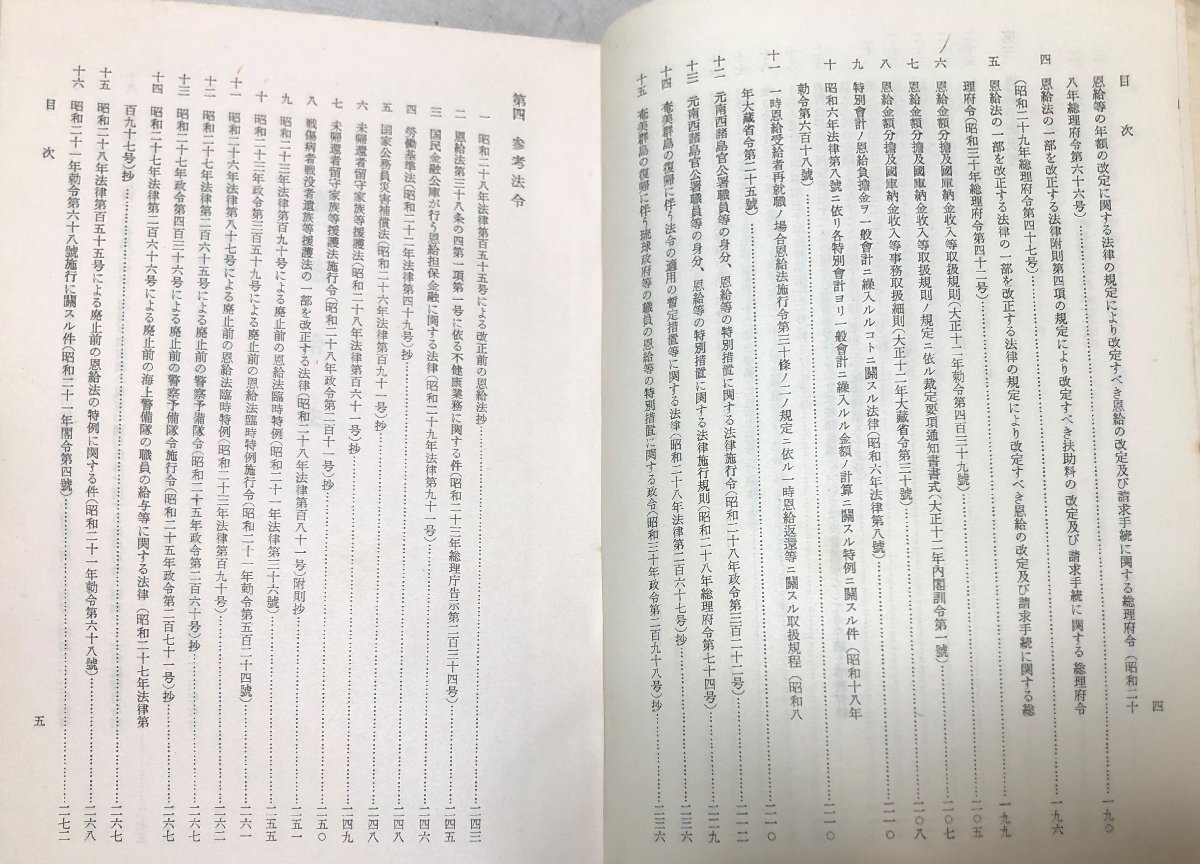 目　次　四
恩給等の年額の改定に関する法律の規定により改定すべき恩給の改定及び請求手続に関する総理府令（昭和二十
八年総理府令第六十六号）……一九〇
四　恩給法の一部を改正する法律附則第四項の規定により改定すべき扶助料の改定及び請求手続に関する総理府令
（昭和二十九年総理府令第四十七号）……一九六
五　恩給法の一部を改正する法律の一部を改正する法律の規定により改定すべき恩給の改定及び請求手続に関する総
理府令（昭和三十年総理府令第四十二号）……一九九
六　恩給金額分擔及國庫納金收入等取扱規則（大正十二年勅令第四百三十九號）……二〇五
七　恩給金額分擔及國庫納金收入等取扱規則ノ規定ニ依ル裁定要項通知書書式（大正十二年內閣訓令第一號）……二〇七
八　恩給金額分擔及國庫納金收入等事務取扱細則（大正十二年大藏省令第三十號）……二〇八
九　特別會計ノ恩給負擔金ヲ一般會計ニ繰入ルルコトニ關スル法律（昭和六年法律第八號）……二一〇
十　昭和六年法律第八號ニ依リ各特別會計ヨリ一般會計ニ繰入ルル金額ノ計算ニ關スル特例ニ關スル件（昭和十八年
勅令第六百十八號）……二一〇
十一　一時恩給受給者再就職ノ場合恩給法施行令第三十條ノ二ノ規定ニ依ル一時恩給返還等ニ關スル取扱規程（昭和八
年大藏省令第二十五號）……二一〇
十二　元南西諸島官公署職員等の身分、恩給等の特別措置に関する法律施行令（昭和二十八年政令第三百二十二号）……二一二
十三　元南西諸島官公署職員等の身分、恩給等の特別措置に関する法律施行規則（昭和二十八年総理府令第七十四号）……二二九
十四　奄美群島の復帰に伴う法令の適用の暫定措置等に関する法律（昭和二十八年法律第二百六十七号）抄……二三六
十五　奄美群島の復帰に伴う琉球政府等の職員の恩給等の特別措置に関する政令（昭和三十年政令第二百九十八号）抄……二三六
第四　参考法令
一　昭和二十八年法律第百五十五号による改正前の恩給法抄……二四三
二　恩給法第三十八条の四第一項第一号に依る不健康業務に関する件（昭和二十三年総理庁告示第二百三十四号）……二四五
三　国民金融公庫が行う恩給担保金融に関する法律（昭和二十九年法律第九十一号）……二四六
四　勞働基準法（昭和二十二年法律第四十九号）抄……二四八
五　国家公務員災害補償法（昭和二十六年法律第百九十一号）抄……二四八
六　未帰還者留守家族等援護法（昭和二十八年法律第百六十一号）抄……二四九
七　未帰還者留守家族等援護法施行令（昭和二十八年政令第二百十一号）抄……二五〇
八　戦傷病者戦没者遺族等援護法の一部を改正する法律（昭和二十八年法律第百八十一号）附則抄……二五一
九　昭和二十三年法律第百九十号による廃止前の恩給法臨時特例（昭和二十一年法律第三十六號）……二五五
十　昭和二十三年政令第三百五十九号による廃止前の恩給法臨時特例施行令（昭和二十一年勅令第五百二十四號）……二六一
十一　昭和二十六年法律第八十七号による廃止前の恩給法臨時特例（昭和二十三年法律第百九十号）……二六二
十二　昭和二十七年法律第二百六十五号による廃止前の警察予備隊令（昭和二十五年政令第二百六十号）抄……二六七
十三　昭和二十七年政令第四百三十六号による廃止前の警察予備隊令施行令（昭和二十五年政令第二百七十一号）抄……二六七
十四　昭和二十七年法律第二百六十六号による廃止前の海上警備隊の職員の給与等に関する法律（昭和二十七年法律第
百九十七号）抄……二六七
十五　昭和二十八年法律第百五十五号による廃止前の恩給法の特例に関する件（昭和二十一年勅令第六十八號）……二六八
十六　昭和二十一年勅令第六十八號施行に關スル件（昭和二十一年閣令第四號）……二七二
目　次　五